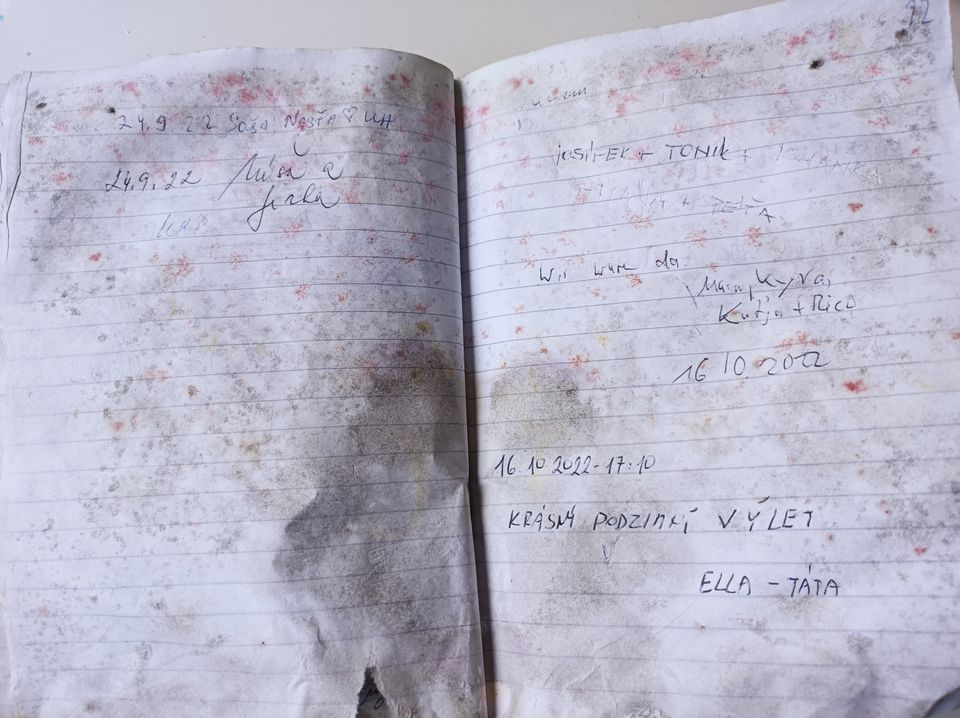 24.9.22 Saša Nasťa ♡ UA
24.9.22 Míša a
Jirka
12
JOSÍFEK + TONÍK +
+ PEŤA
Wir waren da.
Katja + Rico
16 10. 2022
16.10.2022 - 17:10
KRÁSNÝ PODZIMNÍ VÝLET
ELLA - TÁTA